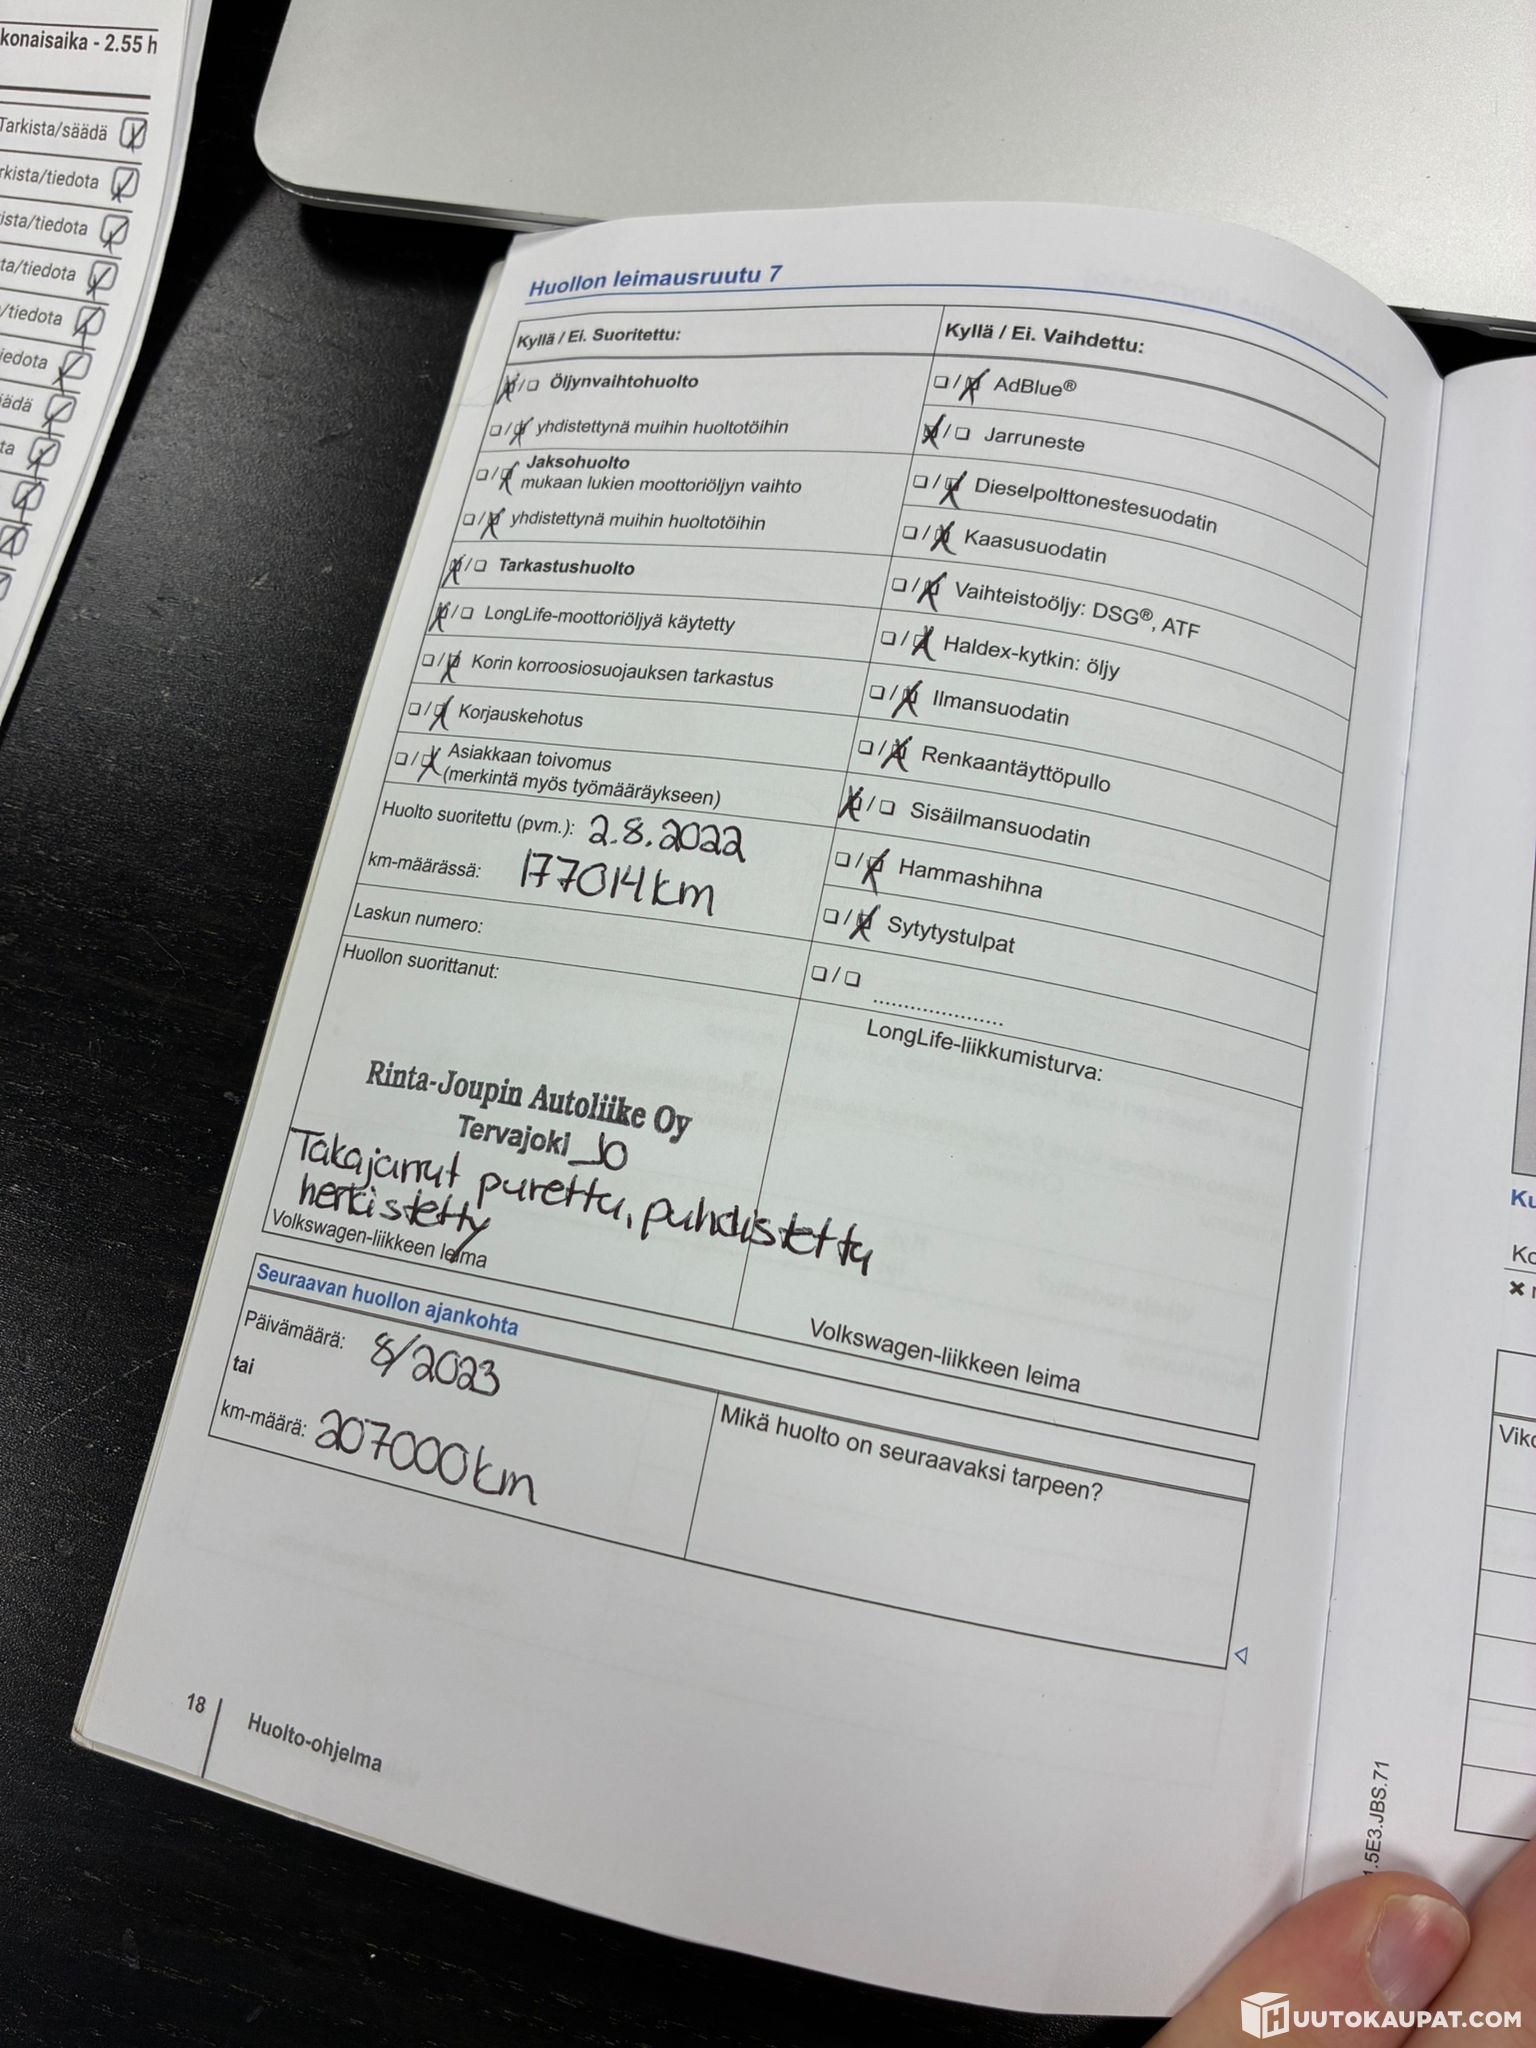 konaisaika - 2.55 h
Tarkista/säädä
rkista/tiedota
ista/tiedota
ta/tiedota
/tiedota
iedota
äädä
ta
Huollon leimausruutu 7
Kyllä / Ei. Suoritettu:
Öljynvaihtohuolto
yhdistettynä muihin huoltotöihin
Jaksohuolto
mukaan lukien moottoriöljyn vaihto
yhdistettynä muihin huoltotöihin
Tarkastushuolto
LongLife-moottoriöljyä käytetty
Korin korroosiosuojauksen tarkastus
Korjauskehotus
Asiakkaan toivomus
(merkintä myös työmääräykseen)
Huolto suoritettu (pvm.): 2.8.2022
km-määrässä: 177014km
Laskun numero:
Huollon suorittanut:
Rinta-Joupin Autoliike Oy
Tervajoki JO
Takajarrut purettu, puhdistettu
herkistetty
Volkswagen-liikkeen leima
Kyllä / Ei. Vaihdettu:
AdBlue®
Jarruneste
Dieselpolttonestesuodatin
Kaasusuodatin
Vaihteistoöljy: DSG®, ATF
Haldex-kytkin: öljy
Ilmansuodatin
Renkaantäyttöpullo
Sisäilmansuodatin
Hammashihna
Sytytystulpat
.....................
LongLife-liikkumisturva:
Volkswagen-liikkeen leima
Seuraavan huollon ajankohta
Päivämäärä: 8/2023
tai
km-määrä: 207000km
Mikä huolto on seuraavaksi tarpeen?
18
Huolto-ohjelma
Ku
Ko
Viko
.5E3.JBS.71
HUUTOKAUPAT.COM